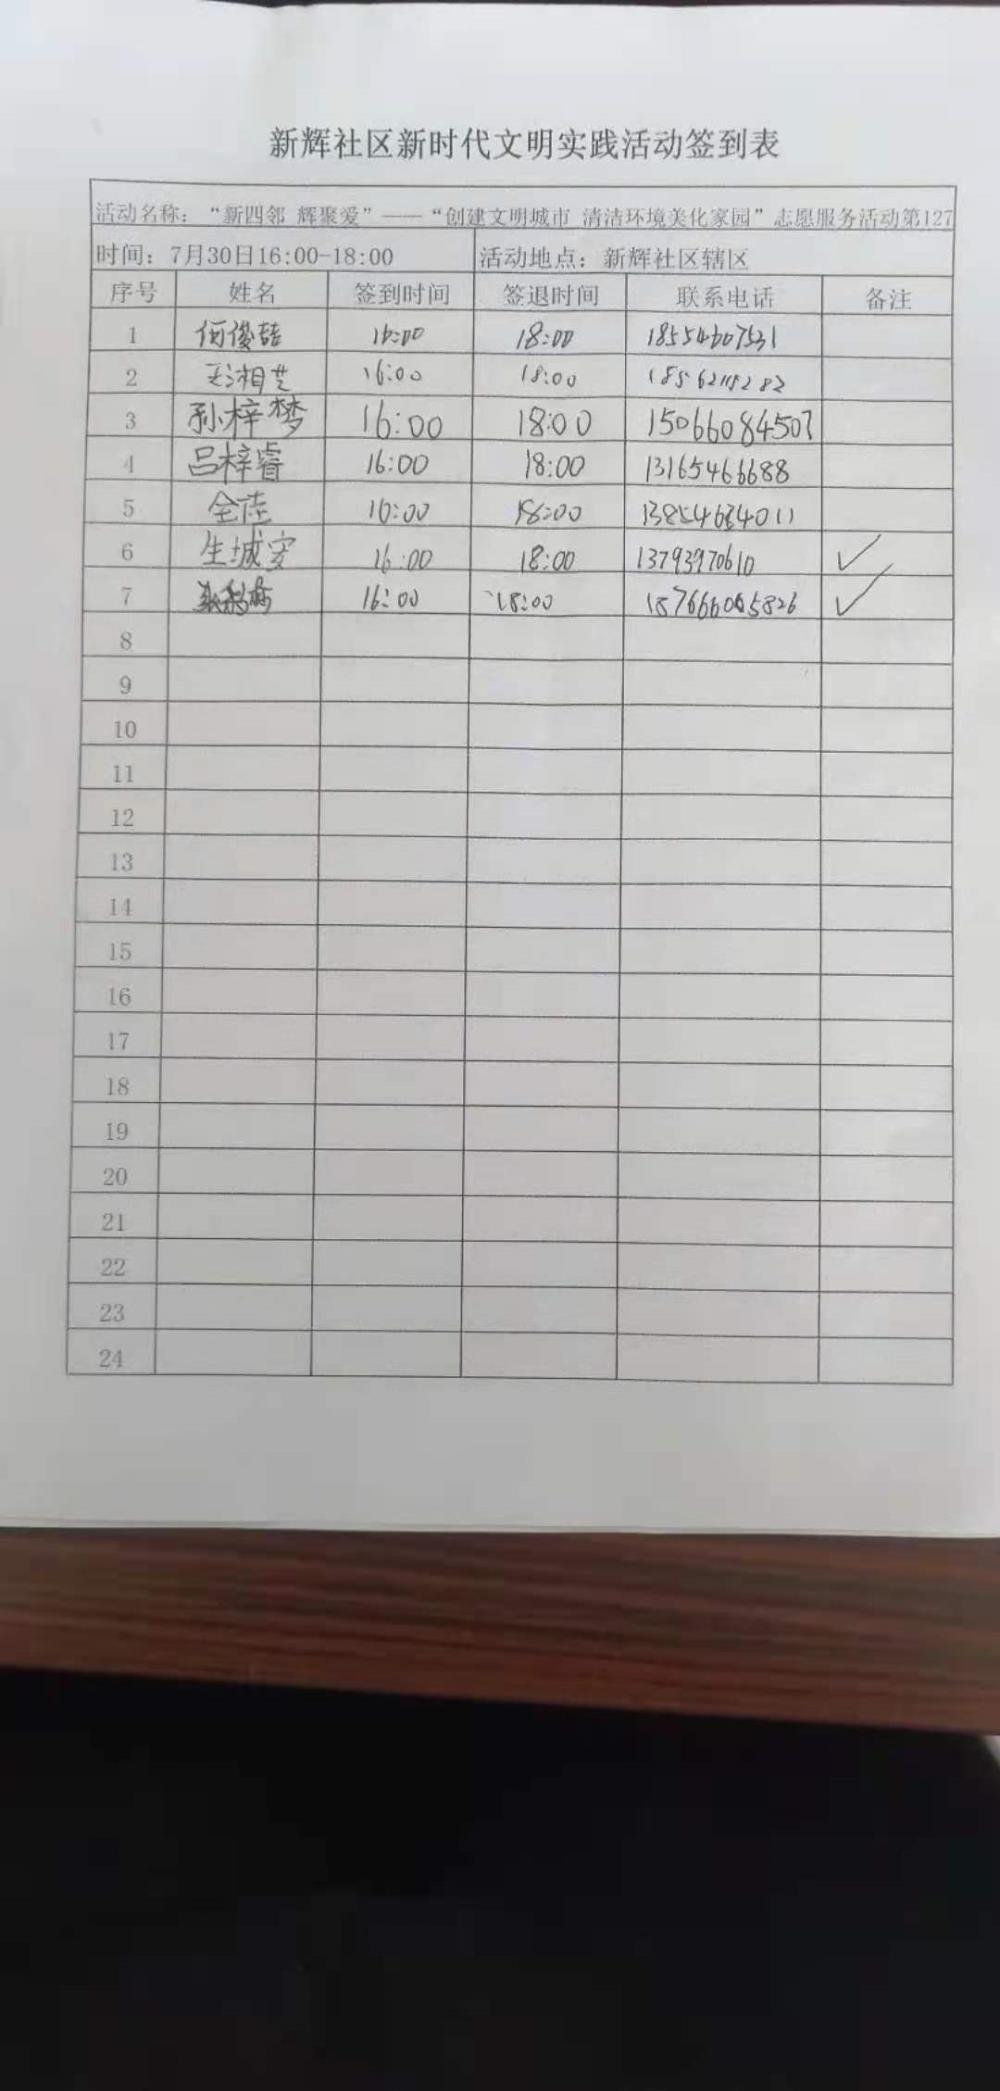 新辉社区新时代文明实践活动签到表
活动名称：“新四邻 辉聚爱”——“创建文明城市 清洁环境美化家园”志愿服务活动第127
时间：7月30日16:00-18:00 活动地点：新辉社区辖区
序号 姓名 签到时间 签退时间 联系电话 备注
1 何俊喆 16:00 18:00 18554607531
2 王湘芝 16:00 18:00
3 孙梓梦 16:00 18:00 15066084507
4 吕梓睿 16:00 18:00 13165466688
5 16:00 18:00
6 生城安 16:00 18:00 13793970610 ✓
7 16:00 18:00 ✓
8
9
10
11
12
13
14
15
16
17
18
19
20
21
22
23
24